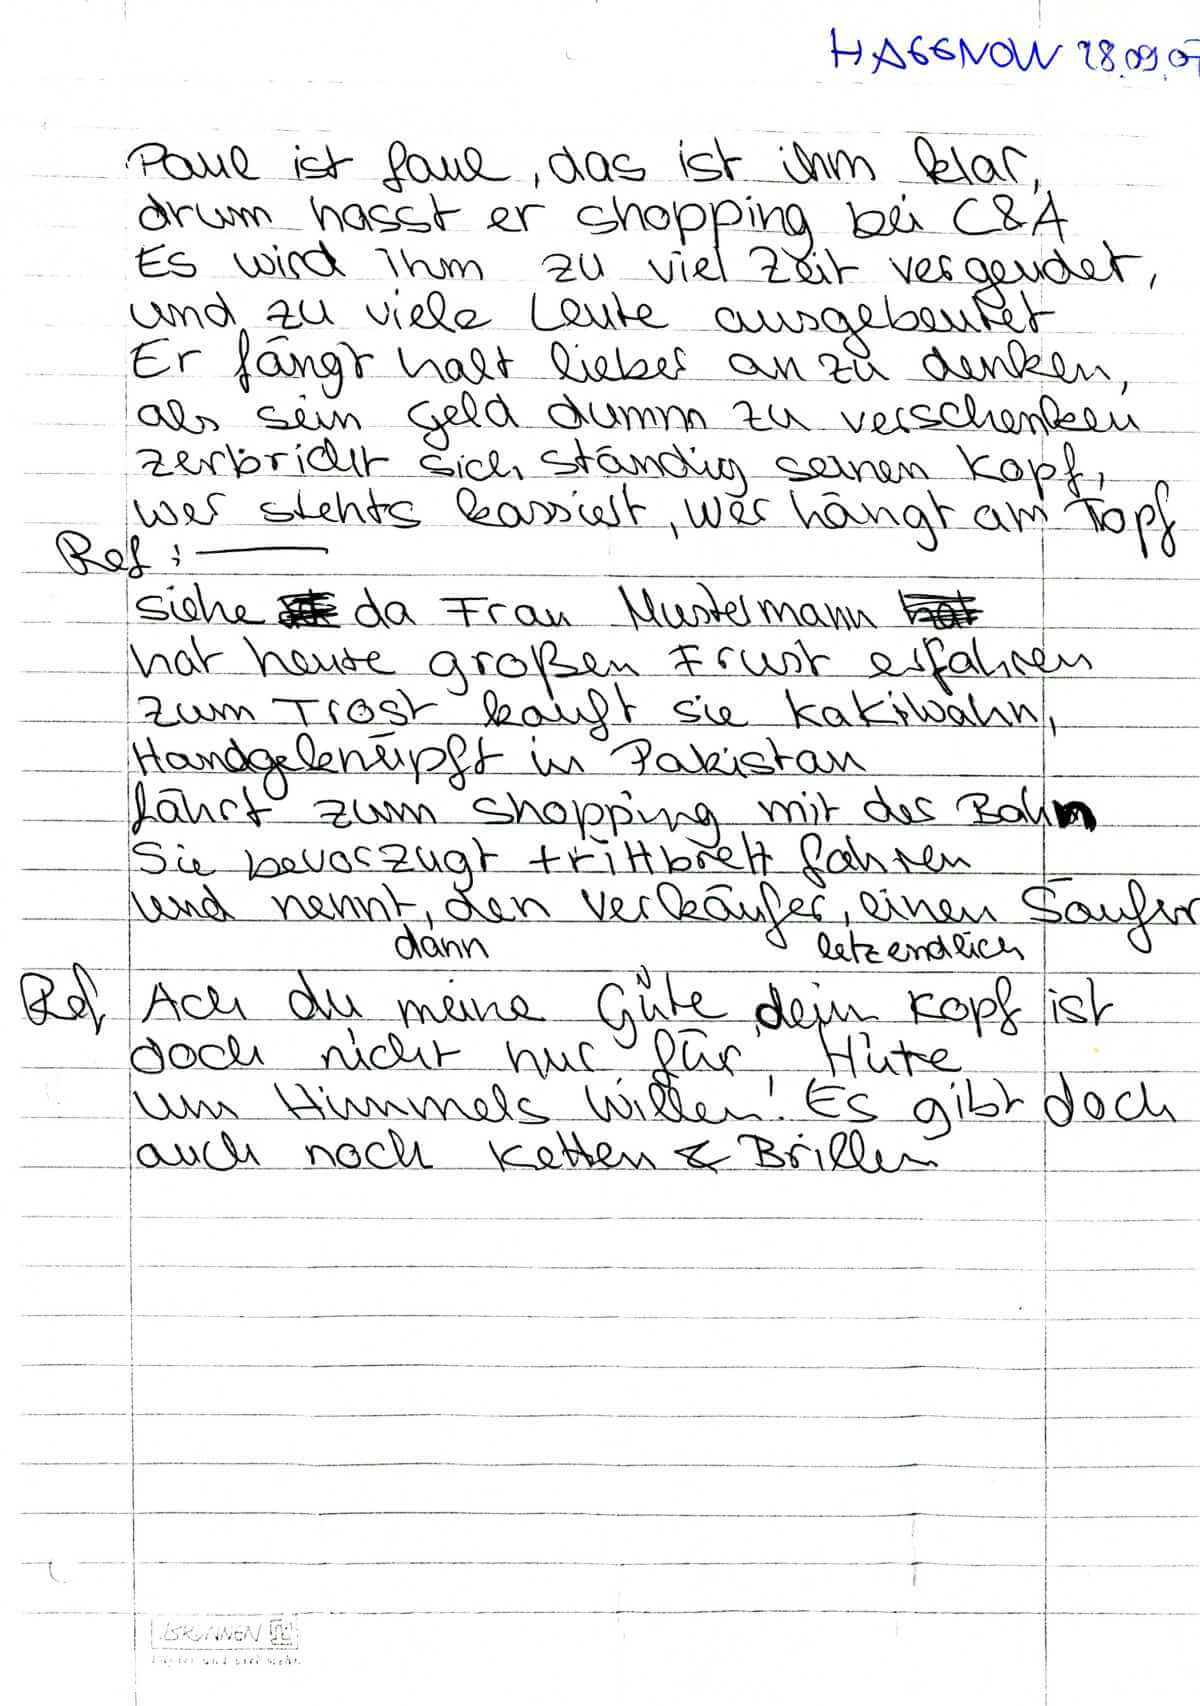 HAGENOW 28.09.07
Paul ist faul, das ist ihm klar,
drum hasst er shopping bei C&A
Es wird ihm zu viel Zeit vergeudet,
und zu viele Leute ausgebeutet
Er fängt halt lieber an zu denken,
als sein Geld dumm zu verschenken
zerbricht sich ständig seinen Kopf,
wer stehts kassiert, wer hängt am Topf
Ref:
siehe da Frau Mustermann
hat heute großen Frust erfahren
zum Trost kauft sie Kakiwahn,
Handgeknüpft in Pakistan
fährt zum shopping mit der Bahn
Sie bevorzugt trittbrett fahren
und nennt, den Verkäufer, einen Säufer
dann letzendlich
Ref Ach du meine Güte, dein Kopf ist
doch nicht nur für Hüte
um Himmels Willen! Es gibt doch
auch noch Ketten & Brillen
BRUNNEN
Papier und viel mehr.